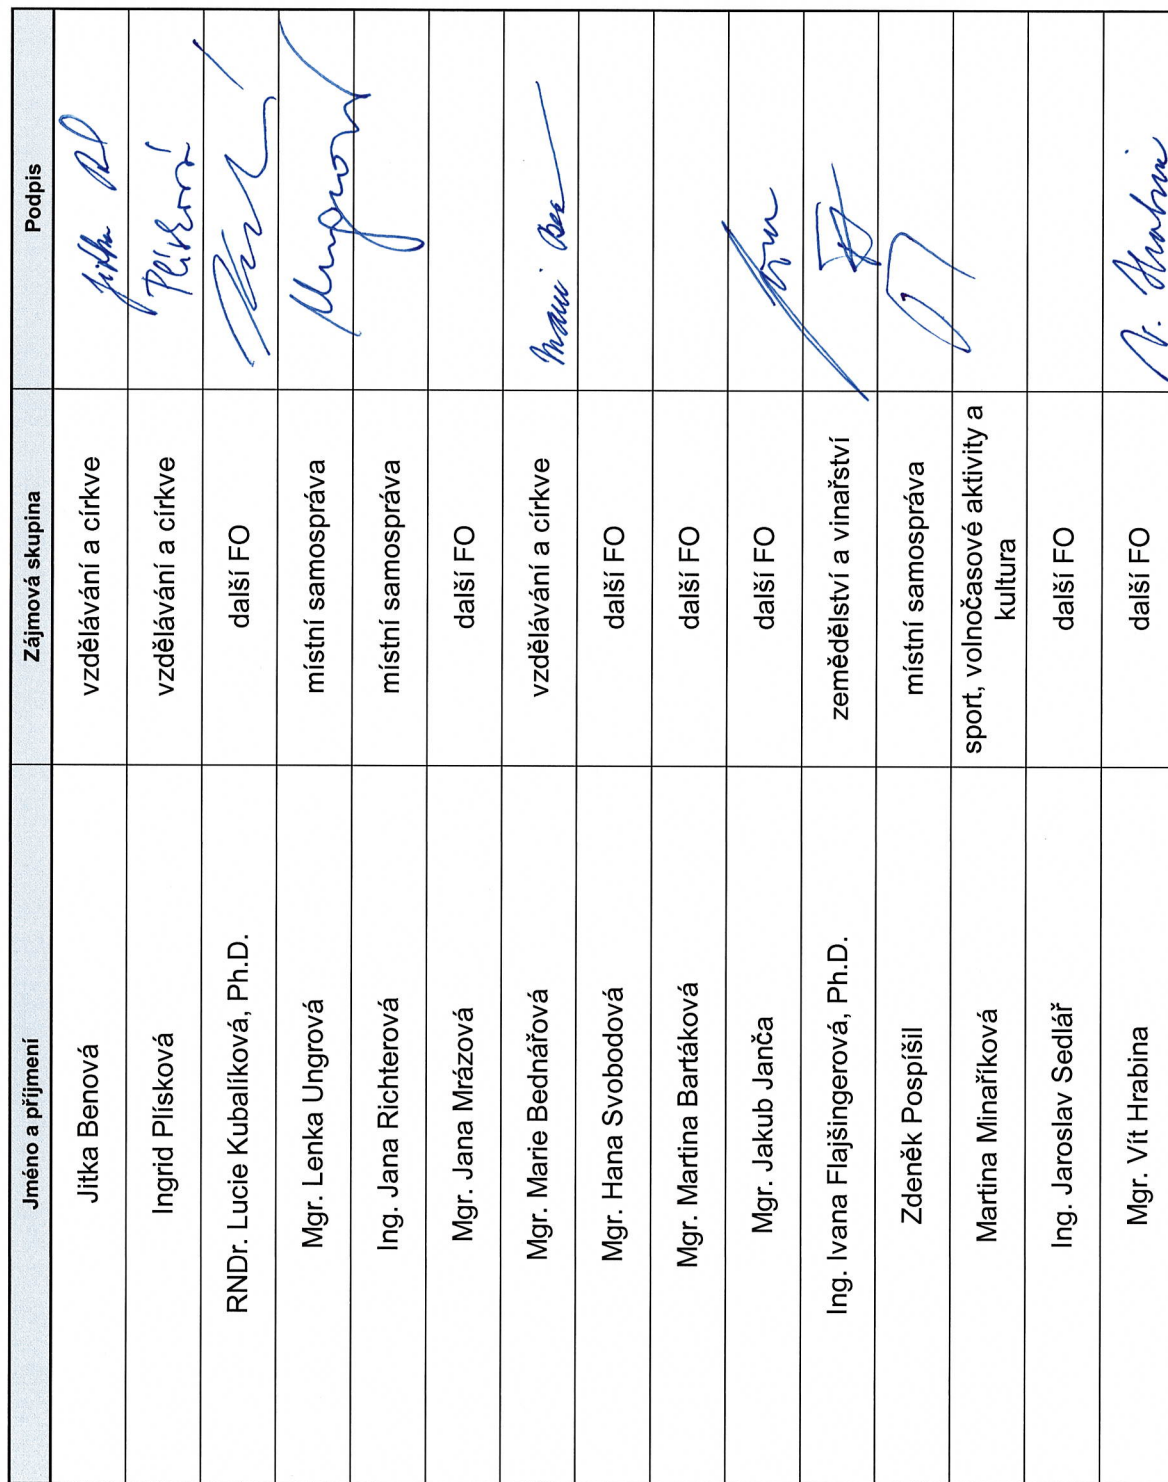 Jméno a příjmení Zájmová skupina Podpis
Jitka Benová vzdělávání a církve Jitka
Ingrid Plísková vzdělávání a církve Plísková
RNDr. Lucie Kubalíková, Ph.D. další FO
Mgr. Lenka Ungrová místní samospráva Ungrová
Ing. Jana Richterová místní samospráva
Mgr. Jana Mrázová další FO
Mgr. Marie Bednářová vzdělávání a církve
Mgr. Hana Svobodová další FO
Mgr. Martina Bartáková další FO
Mgr. Jakub Janča další FO
Ing. Ivana Flajšingerová, Ph.D. zemědělství a vinařství
Zdeněk Pospíšil místní samospráva
Martina Minaříková sport, volnočasové aktivity a
kultura
Ing. Jaroslav Sedlář další FO
Mgr. Vít Hrabina další FO V. Hrabina